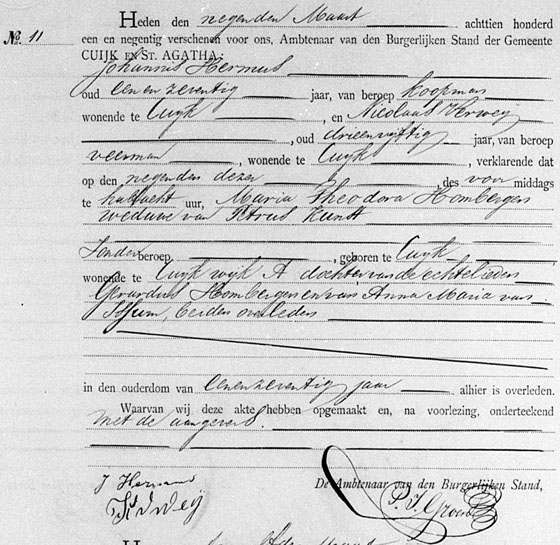 Heden den negenden Maart achttien honderd
No. 11 een en negentig verschenen voor ons, Ambtenaar van den Burgerlijken Stand der Gemeente
CUIJK EN ST. AGATHA:
Johannis Hermus
oud eenenzeventig jaar, van beroep koopman
wonende te Cuyk, en Nicolaas Verweij
, oud drieenvijftig jaar, van beroep
veerman, wonende te Cuyk, verklarende dat
op den negenden dezer, des voor middags
te halfacht uur, Maria Theodora Hombergen
weduwe van Petrus Kunst
Zonder beroep, geboren te Cuyk
wonende te Cuyk wijk A dochter van de echtelieden
Gerardus Hombergen en van Anna Maria van
beiden overleden
in den ouderdom van eenenzeventig jaar alhier is overleden.
Waarvan wij deze akte hebben opgemaakt en, na voorlezing, onderteekend
met de aangevers.
De Ambtenaar van den Burgerlijken Stand,
J
P. J.